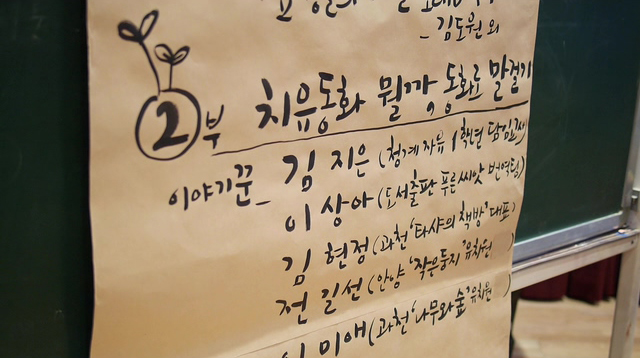 김도원 외
2부 치유동화 뭘까, 동화로 말걸기
이야기꾼_ 김 지은 (청계자유 1학년 담임교사)
이 상아 (도서출판 푸른씨앗 번역팀)
김 현정 (과천 '타샤의 책방' 대표)
전 길선 (안양 '작은둥지' 유치원)
미애 (과천 '나무와 숲' 유치원)